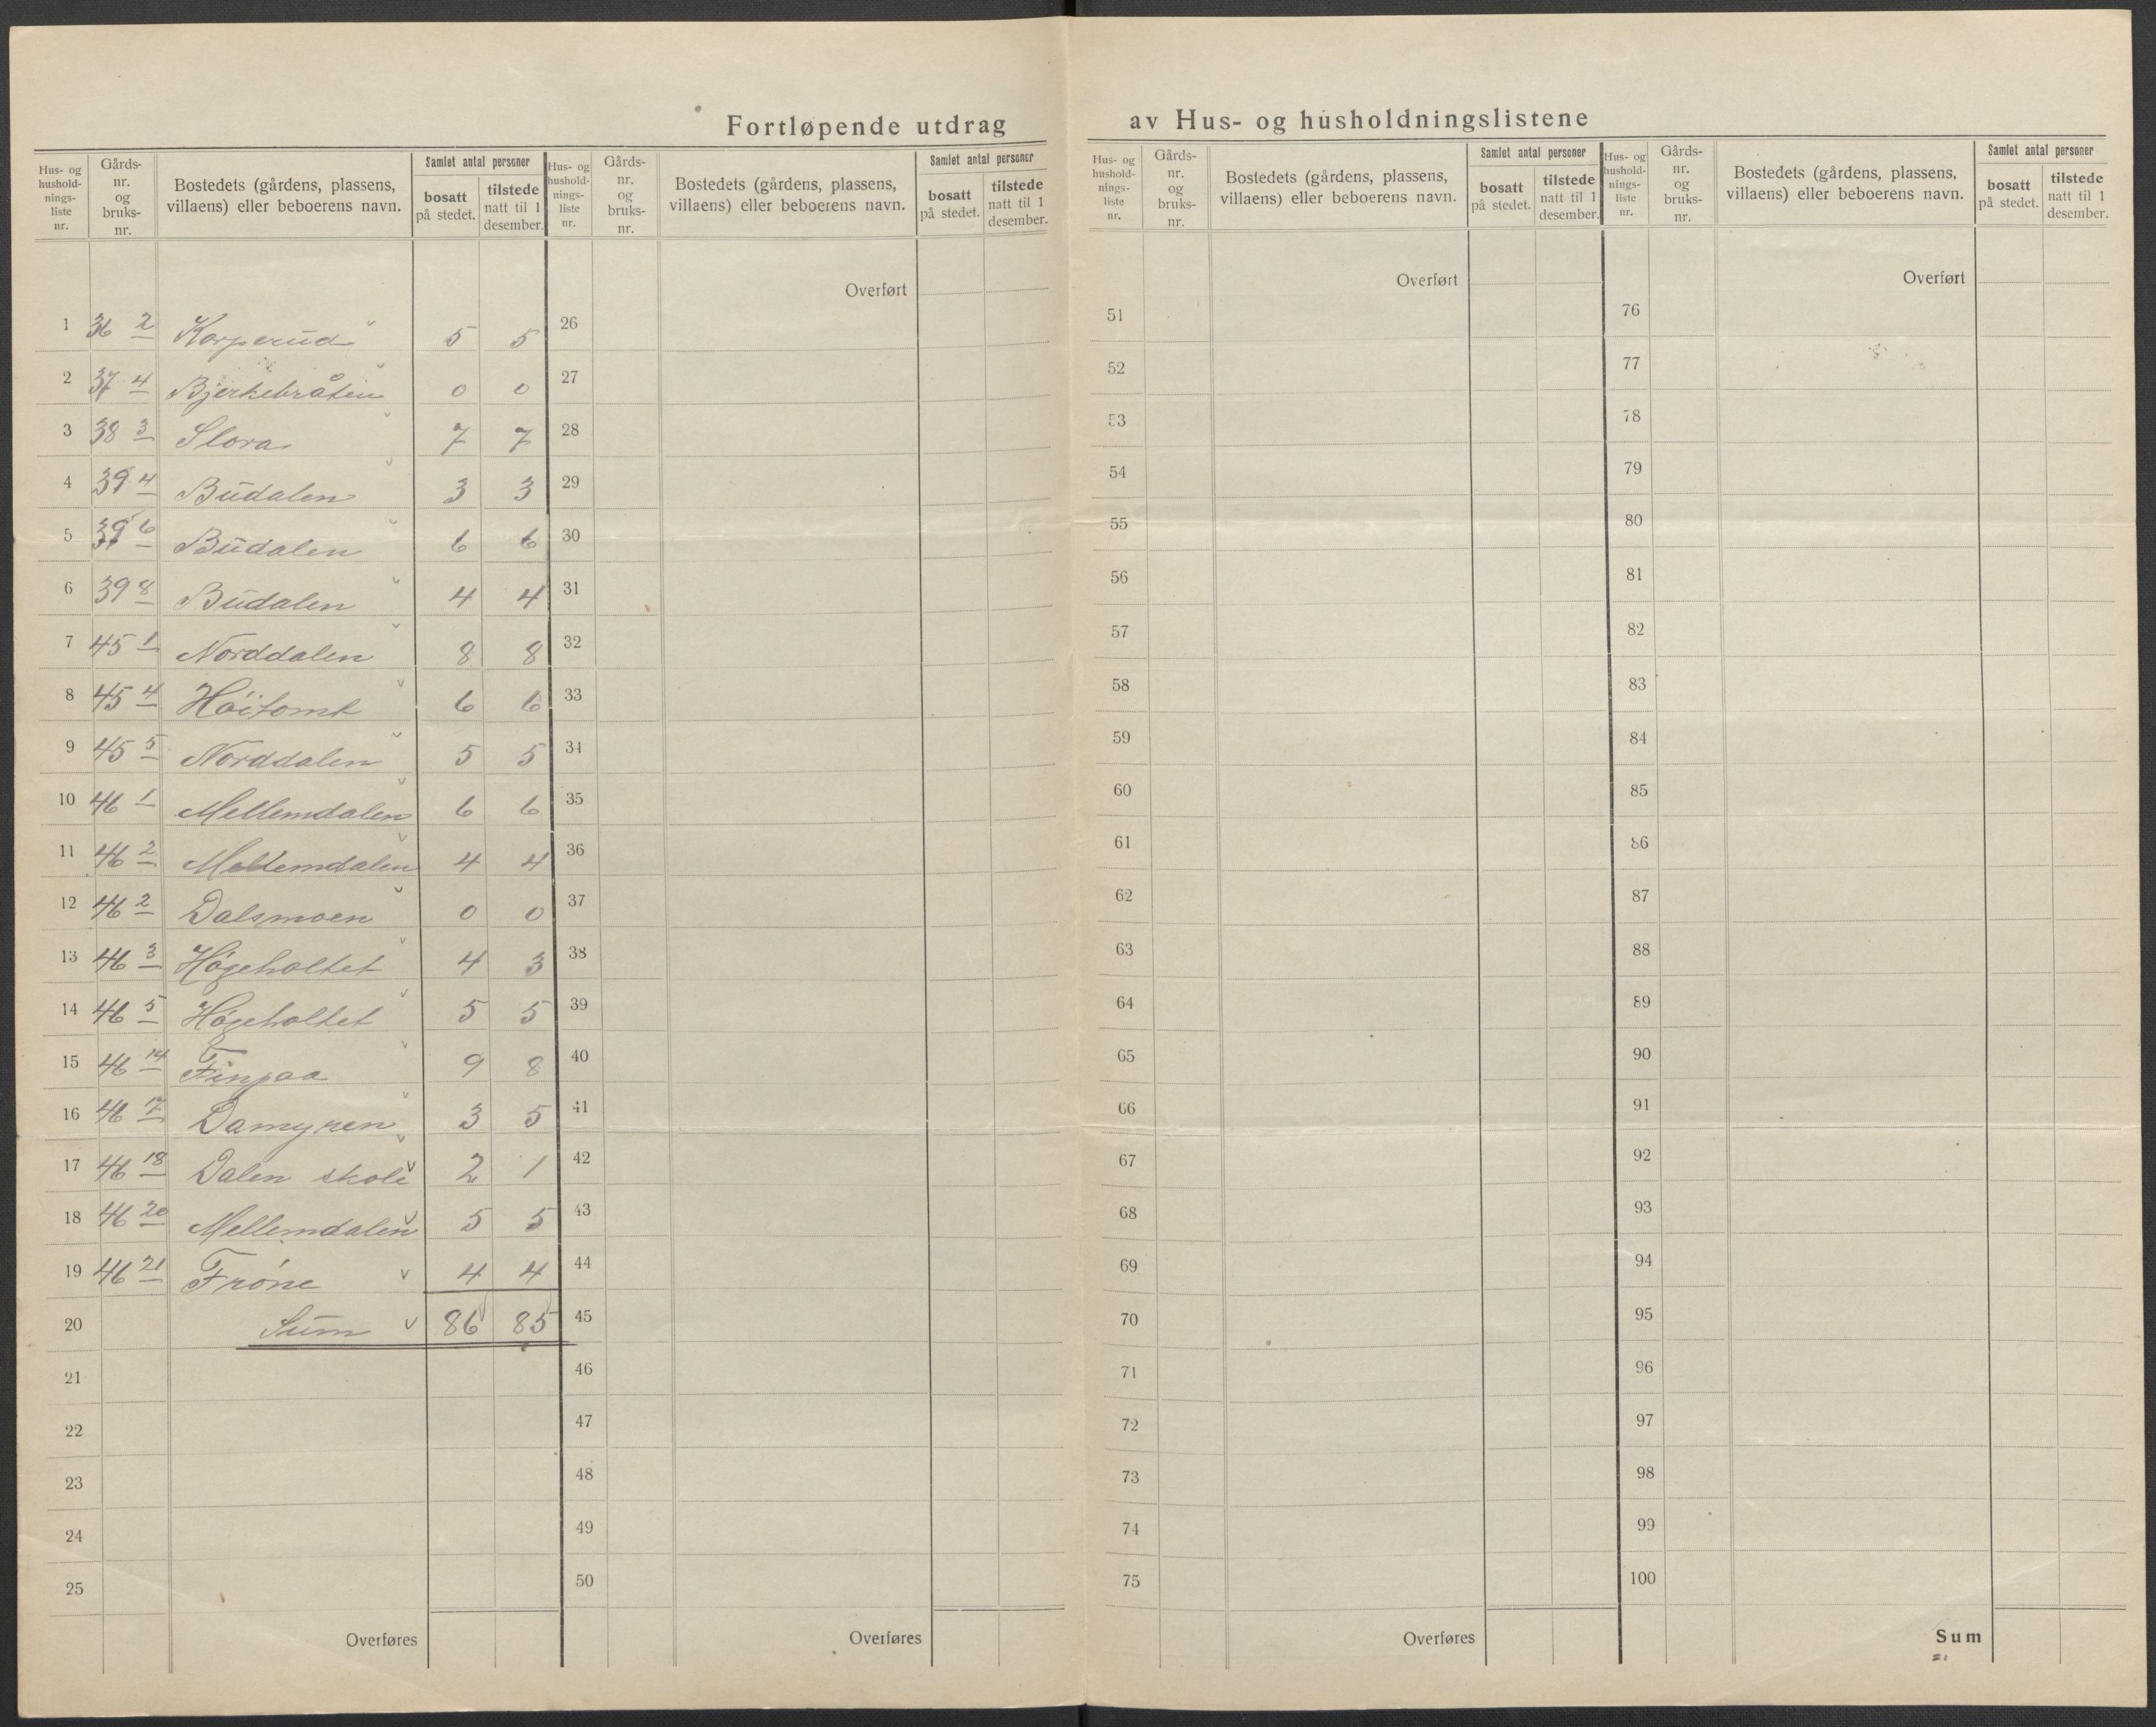 Fortløpende utdrag av Hus- og husholdningslistene
Hus- og hushold- nings- liste nr. | Gårds- nr. og bruks- nr. | Bostedets (gårdens, plassens, villaens) eller beboerens navn. | Samlet antal personer | bosatt på stedet. | tilstede natt til 1 desember.
1 36 2 Korperud 5 5
2 37 4 Bjerkebråten 0 0
3 38 3 Slora 7 7
4 39 4 Budalen 3 3
5 39 6 Budalen 6 6
6 39 8 Budalen 4 4
7 45 1 Norddalen 8 8
8 45 4 Høitomt 6 6
9 45 5 Norddalen 5 5
10 46 1 Mellemdalen 6 6
11 46 2 Mellemdalen 4 4
12 46 2 Dalsmoen 0 0
13 46 3 Høgeholtet 4 3
14 46 5 Høgeholtet 5 5
15 46 14 9 8
16 46 17 Damyren 3 5
17 46 18 Dalen skole 2 1
18 46 20 Mellemdalen 5 5
19 46 21 Frøne 4 4
20 Sum 86 85
21
22
23
24
25
Overføres
Hus- og hushold- nings- liste nr. | Gårds- nr. og bruks- nr. | Bostedets (gårdens, plassens, villaens) eller beboerens navn. | Samlet antal personer | bosatt på stedet. | tilstede natt til 1 desember.
Overført
26
27
28
29
30
31
32
33
34
35
36
37
38
39
40
41
42
43
44
45
46
47
48
49
50
Overføres
Hus- og hushold- nings- liste nr. | Gårds- nr. og bruks- nr. | Bostedets (gårdens, plassens, villaens) eller beboerens navn. | Samlet antal personer | bosatt på stedet. | tilstede natt til 1 desember.
Overført
51
52
53
54
55
56
57
58
59
60
61
62
63
64
65
66
67
68
69
70
71
72
73
74
75
Overføres
Hus- og hushold- nings- liste nr. | Gårds- nr. og bruks- nr. | Bostedets (gårdens, plassens, villaens) eller beboerens navn. | Samlet antal personer | bosatt på stedet. | tilstede natt til 1 desember.
Overført
76
77
78
79
80
81
82
83
84
85
86
87
88
89
90
91
92
93
94
95
96
97
98
99
100
Sum